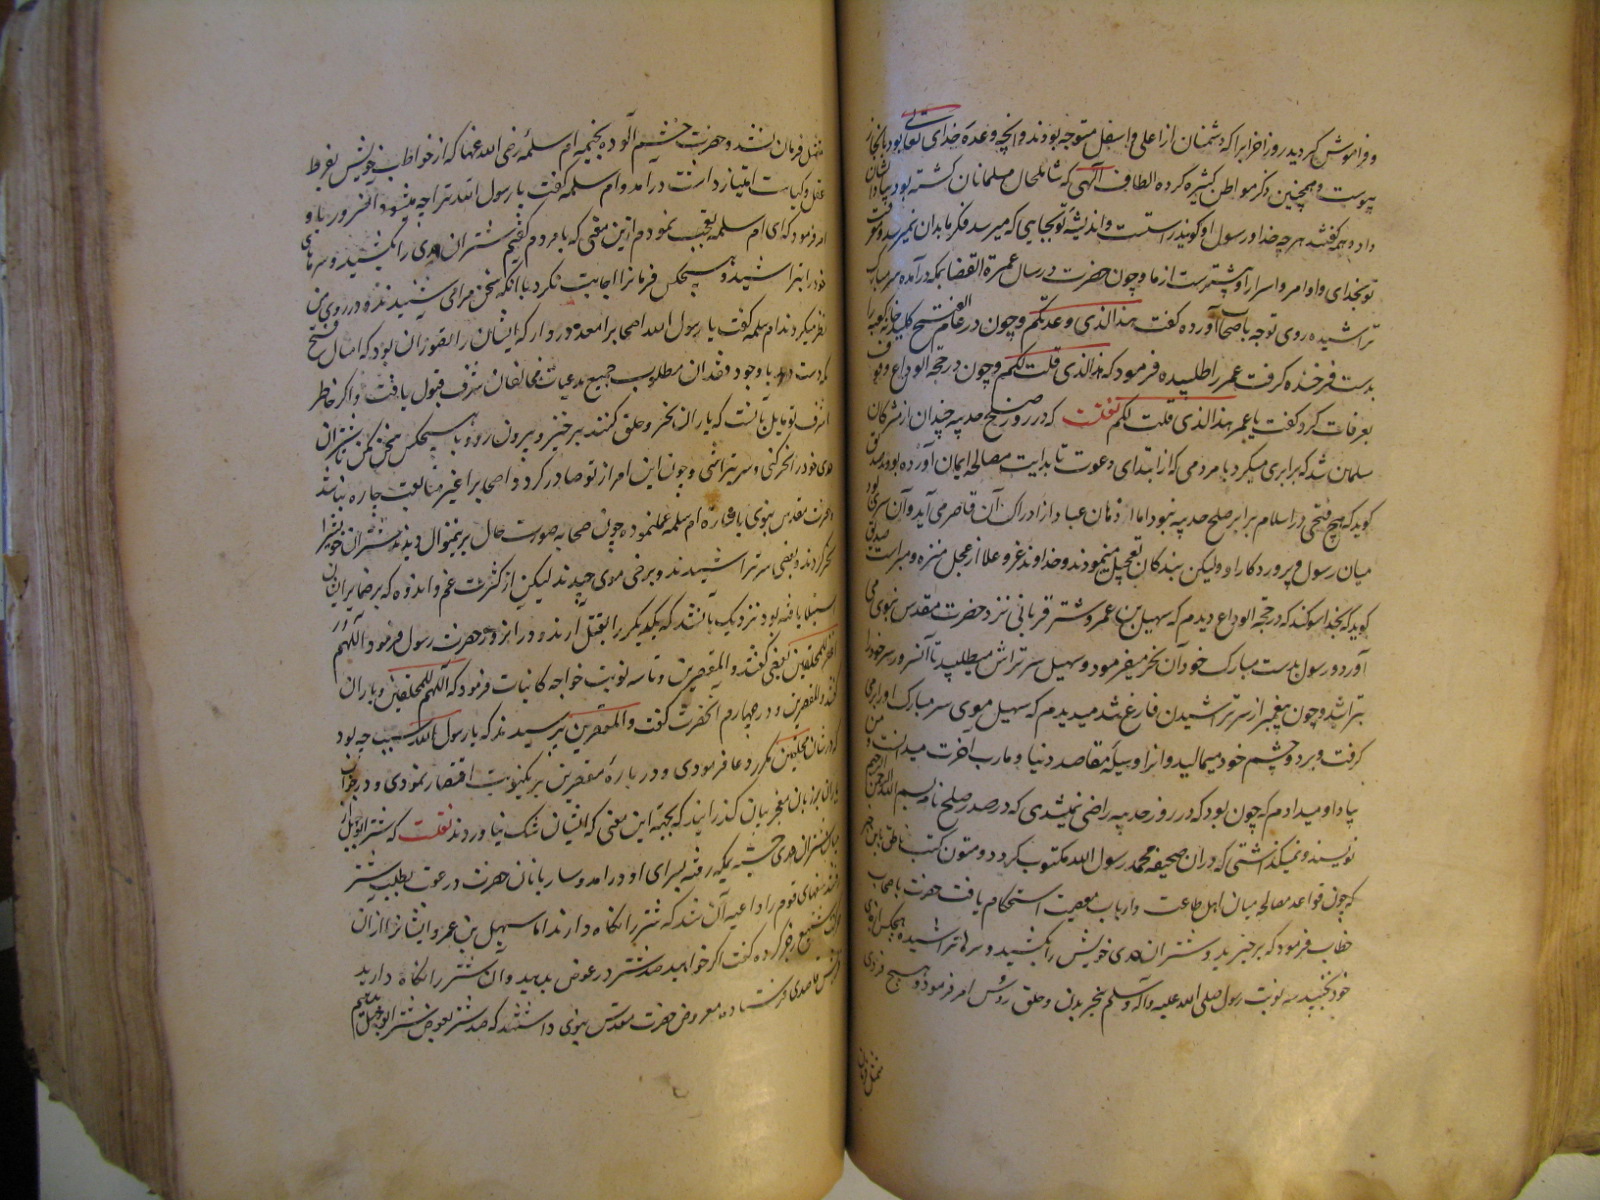 و فراموش کردید روز احزاب را که دشمنان از اعلی و اسفل متوجه بودند و آنچه وعدهٔ خدای تعالی بود بانجاز
پیوست و همچنین دکر مواطن کثیره کرده الطاف آلهی که شامل حال مسلمانان کشته بود بیاد ایشان
داد و همه کفتند هرچه خدا و رسول او کویند راست است و اندیشهٔ تو بجایی که میرسد فکر ما بدان نمیرسد و معرفت
تو بخدای و اوامر و اسرار او بیشترست از ما و چون حضرت در سال عمرة القضا بمکه درآمده سر مبارک
تراشیده روی توجه باصحاب آورده کفت هذا الذی وعدتکم و چون در عام الفتح کلید خانه کعبه را
بدست فرخنده کرفت عمر را طلبیده فرمود که هذا الذی قلت لکم و چون در حجة الوداع وقوف
بعرفات کرد کفت یا عمر هذا الذی قلت لکم نقلست که در روز صلح حدیبیه چندان از مشرکان
مسلمان شد که برابری میکرد با مردمی که از ابتدای دعوت تا بدایت مصالحه ایمان آورده بودند صدیق
کوید که هیچ فتحی در اسلام برابر صلح حدیبیه نبود اما اذهان عباد از ادراک آن قاصر می آید و آن سری بود
میان رسول و پروردکار او و لیکن بندکان تعجیل مینمودند و خداوند عز و علا از عجل منزه و مبراست صدیق
کوید که بخدا سوکند که در حجة الوداع دیدم که سهیل بن عمرو شتر قربانی نزد حضرت مقدس نبوی می
آورد و رسول بدست مبارک خود آن نحر میفرمود و سهیل سرتراش میطلبید تا آنسرور سر خود را
بتراشد و چون پیغمبر از سر تراشیدن فارغ شد میدیدم که سهیل موی سر مبارک او را برمی
کرفت و بر دو چشم خود میمالید و انرا وسیلهٔ مقاصد دنیا و مآرب آخرت میدانست و من
بیاد او میدادم که چون بود که در روز حدیبیه راضی نمیشدی که در صدر صلح نامه بسم الله الرحمن الرحیم
نویسند و نمیکذاشتی که دران صحیفه محمد رسول الله مکتوب کردد و متون کتب ناطق باین خبر
که چون قواعد مصالحه میان اهل طاعت و ارباب معصیت استحکام یافت حضرت با صحاب
خطاب فرمود که برخیزید و شتران هدی خویش را بکشید و سرها تراشیده هیچکس از جای
خود نجنبید سه نوبت رسول صلی الله علیه و آله و سلم بنحر بدن و حلق رؤس امر فرمود و هیچ فردی
ممتثل فرمان
ممتثل فرمان نشد و حضرت خشم آلوده بخیمه ام سلمه رضی الله عنها که از خواطب خویش بفرط
عقل و کیاست امتیاز داشت درآمد و ام سلمه کفت یا رسول الله ترا چه میشود آنسرور با و
امر فرمود که ای ام سلمه تعجب نمودم ازین معنی که با مردم کفتم شتران هدی را بکشید و سرهای
خود را بتراشید و هیچکس فرمان مرا اجابت نکرد با انکه سخن مرا می شنیدند و در روی من
نظر میکردند ام سلمه کفت یا رسول الله اصحاب را معذور دار که ایشان را تصور آن بود که امسال فتح
مکه دست دهد با وجود فقدان مطلوب جمیع مدعیات مخالفان شرف قبول یافت و اکر خاطر
اشرف تو مایل بآنست که یاران نحر و حلق کنند برخیز و بیرون رو و با هیچکس سخن مکن تا شتران
هدی خود را نحر کنی و سر بتراشی و چون این امر از تو صادر کردد اصحاب را غیر متابعت چاره نباشد
حضرت مقدس نبوی باشارهٔ ام سلمه عمل نموده چون صحابه صورت حال برین منوال دیدند شتران خویش را
نحر کردند و بعضی سر تراشیدند و برخی موی چیدند لیکن از کثرت غم و اندوه که بر ضمایر ایشان
استیلا یافته بود نزدیک بآن شد که یکدیکر را بقتل آرند و در انروز حضرت رسول فرمود اللهم
اغفر للمحلقین بعضی کفتند و المقصرین و تا سه نوبت خواجه کاینات فرمود که اللهم للمحلقین و یاران
کفتند و للمقصرین و در چهارم آنحضرت کفت و المقصرین پرسیدند که یا رسول الله سبب چه بود
که در شان محلقین مکرر دعا فرمودی و در بارهٔ مقصرین بر یکنوبت اقتصار نمودی و در جواب
یاران بر زبان معجز بیان کذرانید که بجهة این معنی که ایشان شک نیاوردند نقلست که شتر ابوجهل از
میان شتران هدی جسته بمکه رفته بسرای او درآمد و ساربانان حضرت در عقب بطلب شتر
رفتند سفهای قوم را داعیه آن شد که شتر را نکاه دارند اما سهیل بن عمرو ایشانرا ازان
کفت اکر خواهید صد شتر در عوض بدهید و آن شتر را نکاه دارید
قریش قاصدی فرستاده معروض حضرت مقدس نبوی داشتند که صد شتر بعوض شتر ابوجهل میدهیم